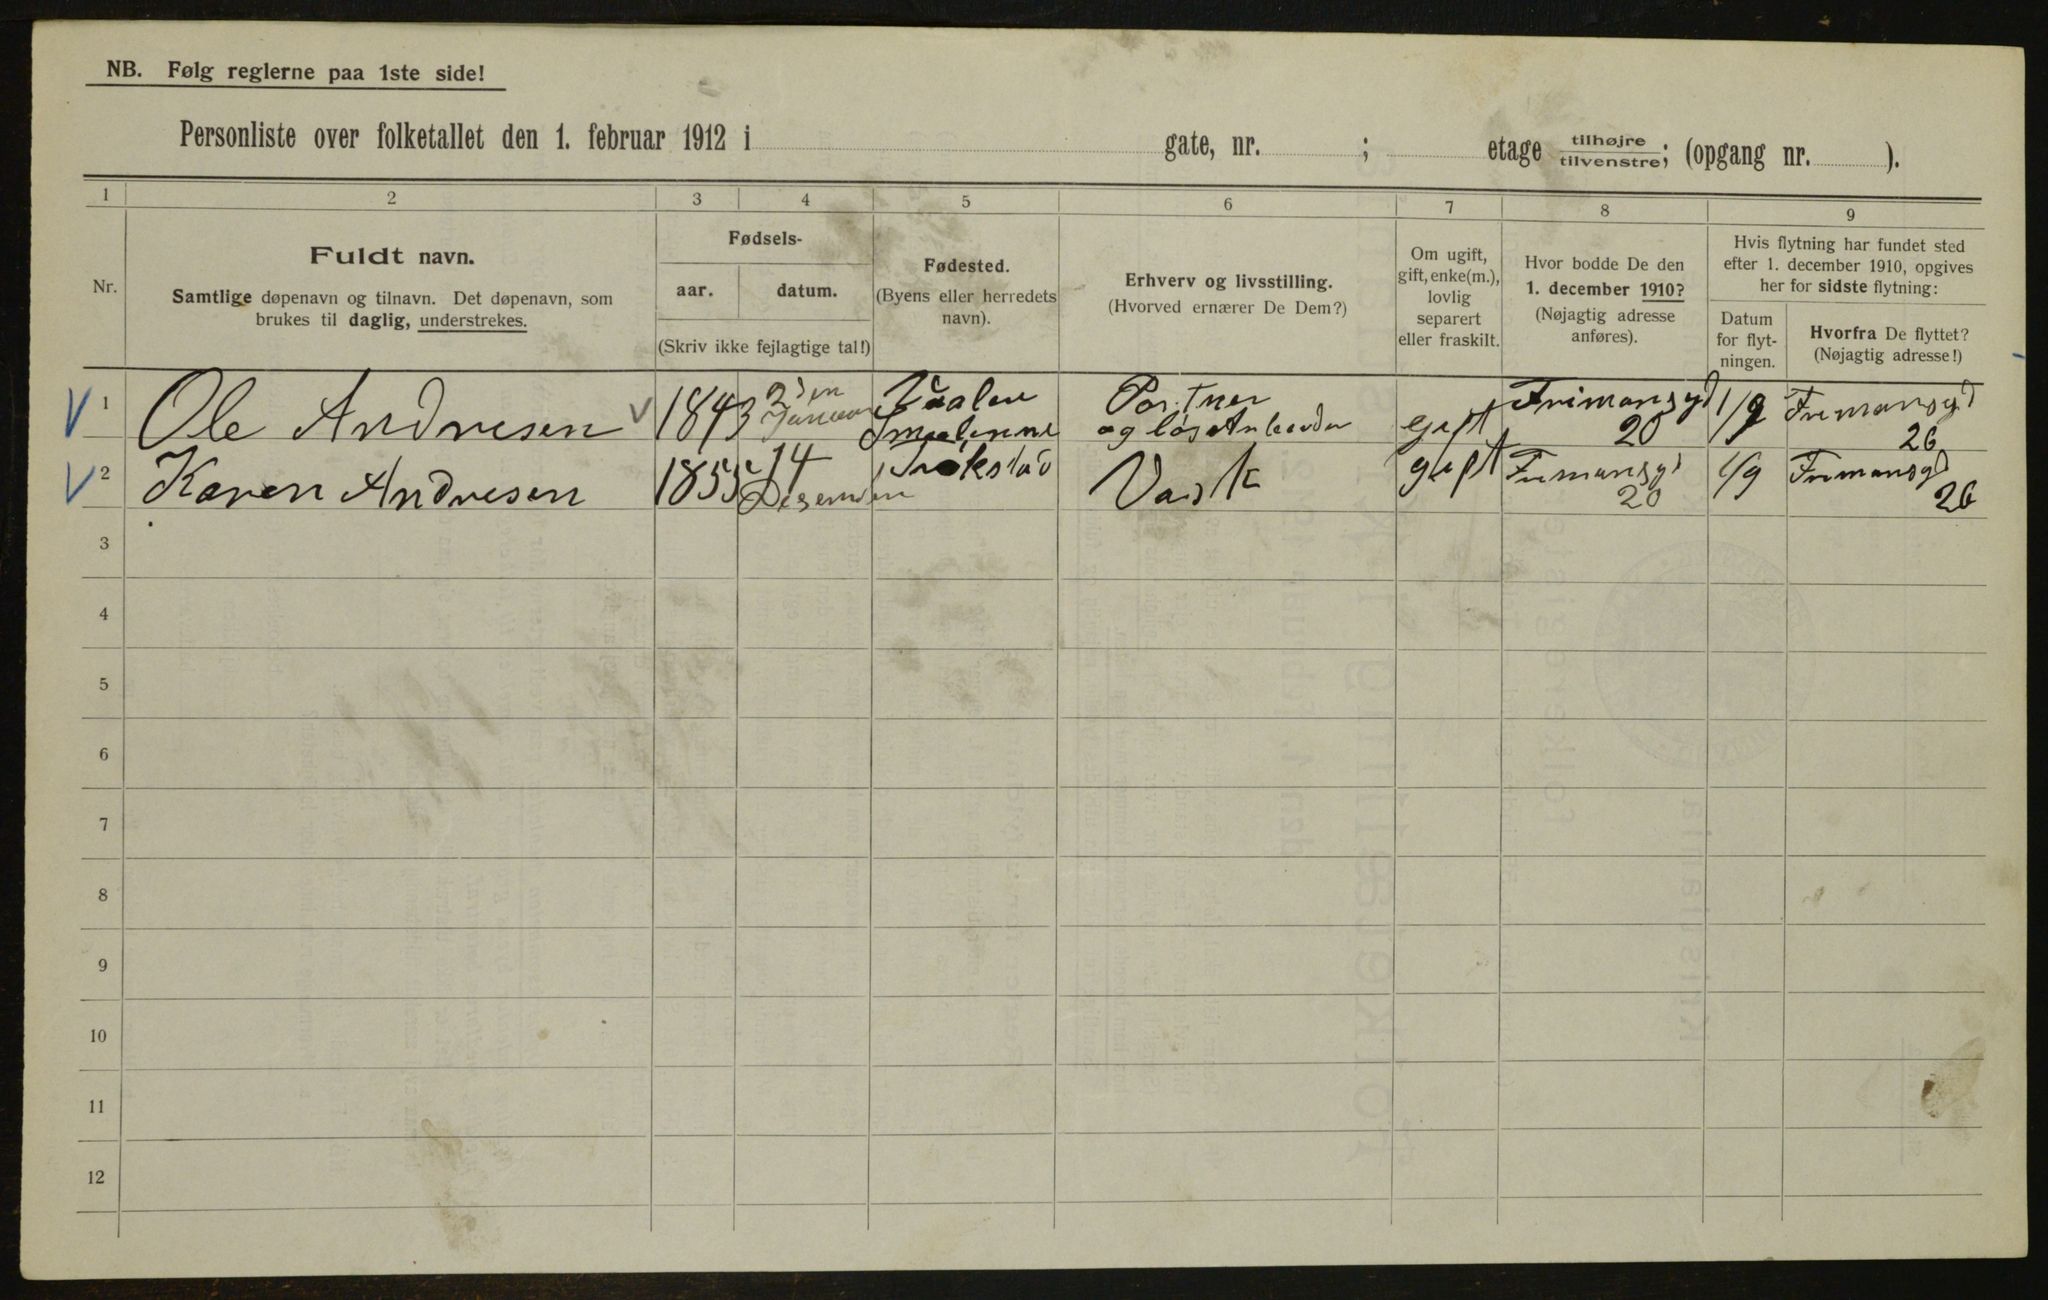 NB. Følg reglerne paa 1ste side!
Personliste over folketallet den 1. februar 1912 i gate, nr. ; etage tilhøjre/tilvenstre; (opgang nr. ).
1 2 3 4 5 6 7 8 9
Nr.
Fuldt navn.
Samtlige døpenavn og tilnavn. Det døpenavn, som
brukes til daglig, understrekes.
Fødsels-
aar. datum.
(Skriv ikke fejlagtige tal!)
Fødested.
(Byens eller herredets
navn).
Erhverv og livsstilling.
(Hvorved ernærer De Dem?)
Om ugift,
gift, enke(m.),
lovlig
separert
eller fraskilt.
Hvor bodde De den
1. december 1910?
(Nøjagtig adresse
anføres).
Hvis flytning har fundet sted
efter 1. december 1910, opgives
her for sidste flytning:
Datum
for flyt-
ningen.
Hvorfra De flyttet?
(Nøjagtig adresse!)
V 1 Ole Andresen V 1843 Vaaler Portner gift Frimansgd 20 1/9 Frimansgd 26
Smaalenne og løs Arbeider
V 2 Karen Andresen 1855 14 Desember Trøkstad Vask gift Frimansgd 20 1/9 Frimansgd 26
3
4
5
6
7
8
9
10
11
12